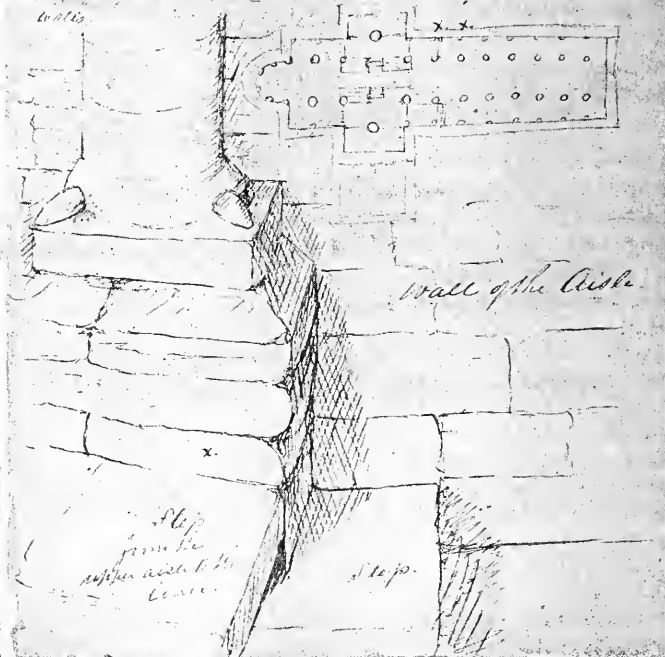 walls
x x
wall of the Aisle
x.
Step
from the
upper aisle to the
lower.
Step.